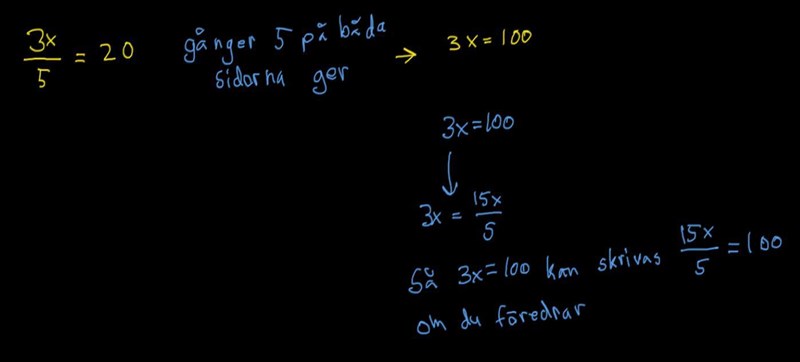 3x/5 = 20 gånger 5 på båda → 3x = 100
sidorna ger
3x = 100
↓
3x = 15x/5
Så 3x = 100 kan skrivas 15x/5 = 100
om du föredrar